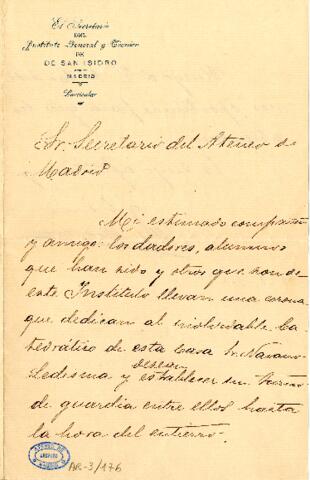 El Secretario
DEL
Instituto General y Técnico
DE
DE SAN ISIDRO
MADRID
Particular
Sr. Secretario del Ateneo de
Madrid
Mi estimado compañero
y amigo: los dadores, alumnos
que han sido y otros que son de
este Instituto llevan una corona
que dedican al inolvidable Ca
tedrático de esta casa Sr. Navarro
Ledesma y desean establecer un turno
de guardia entre ellos hasta
la hora del entierro.
ATENEO DE
MADRID
AR-3/176